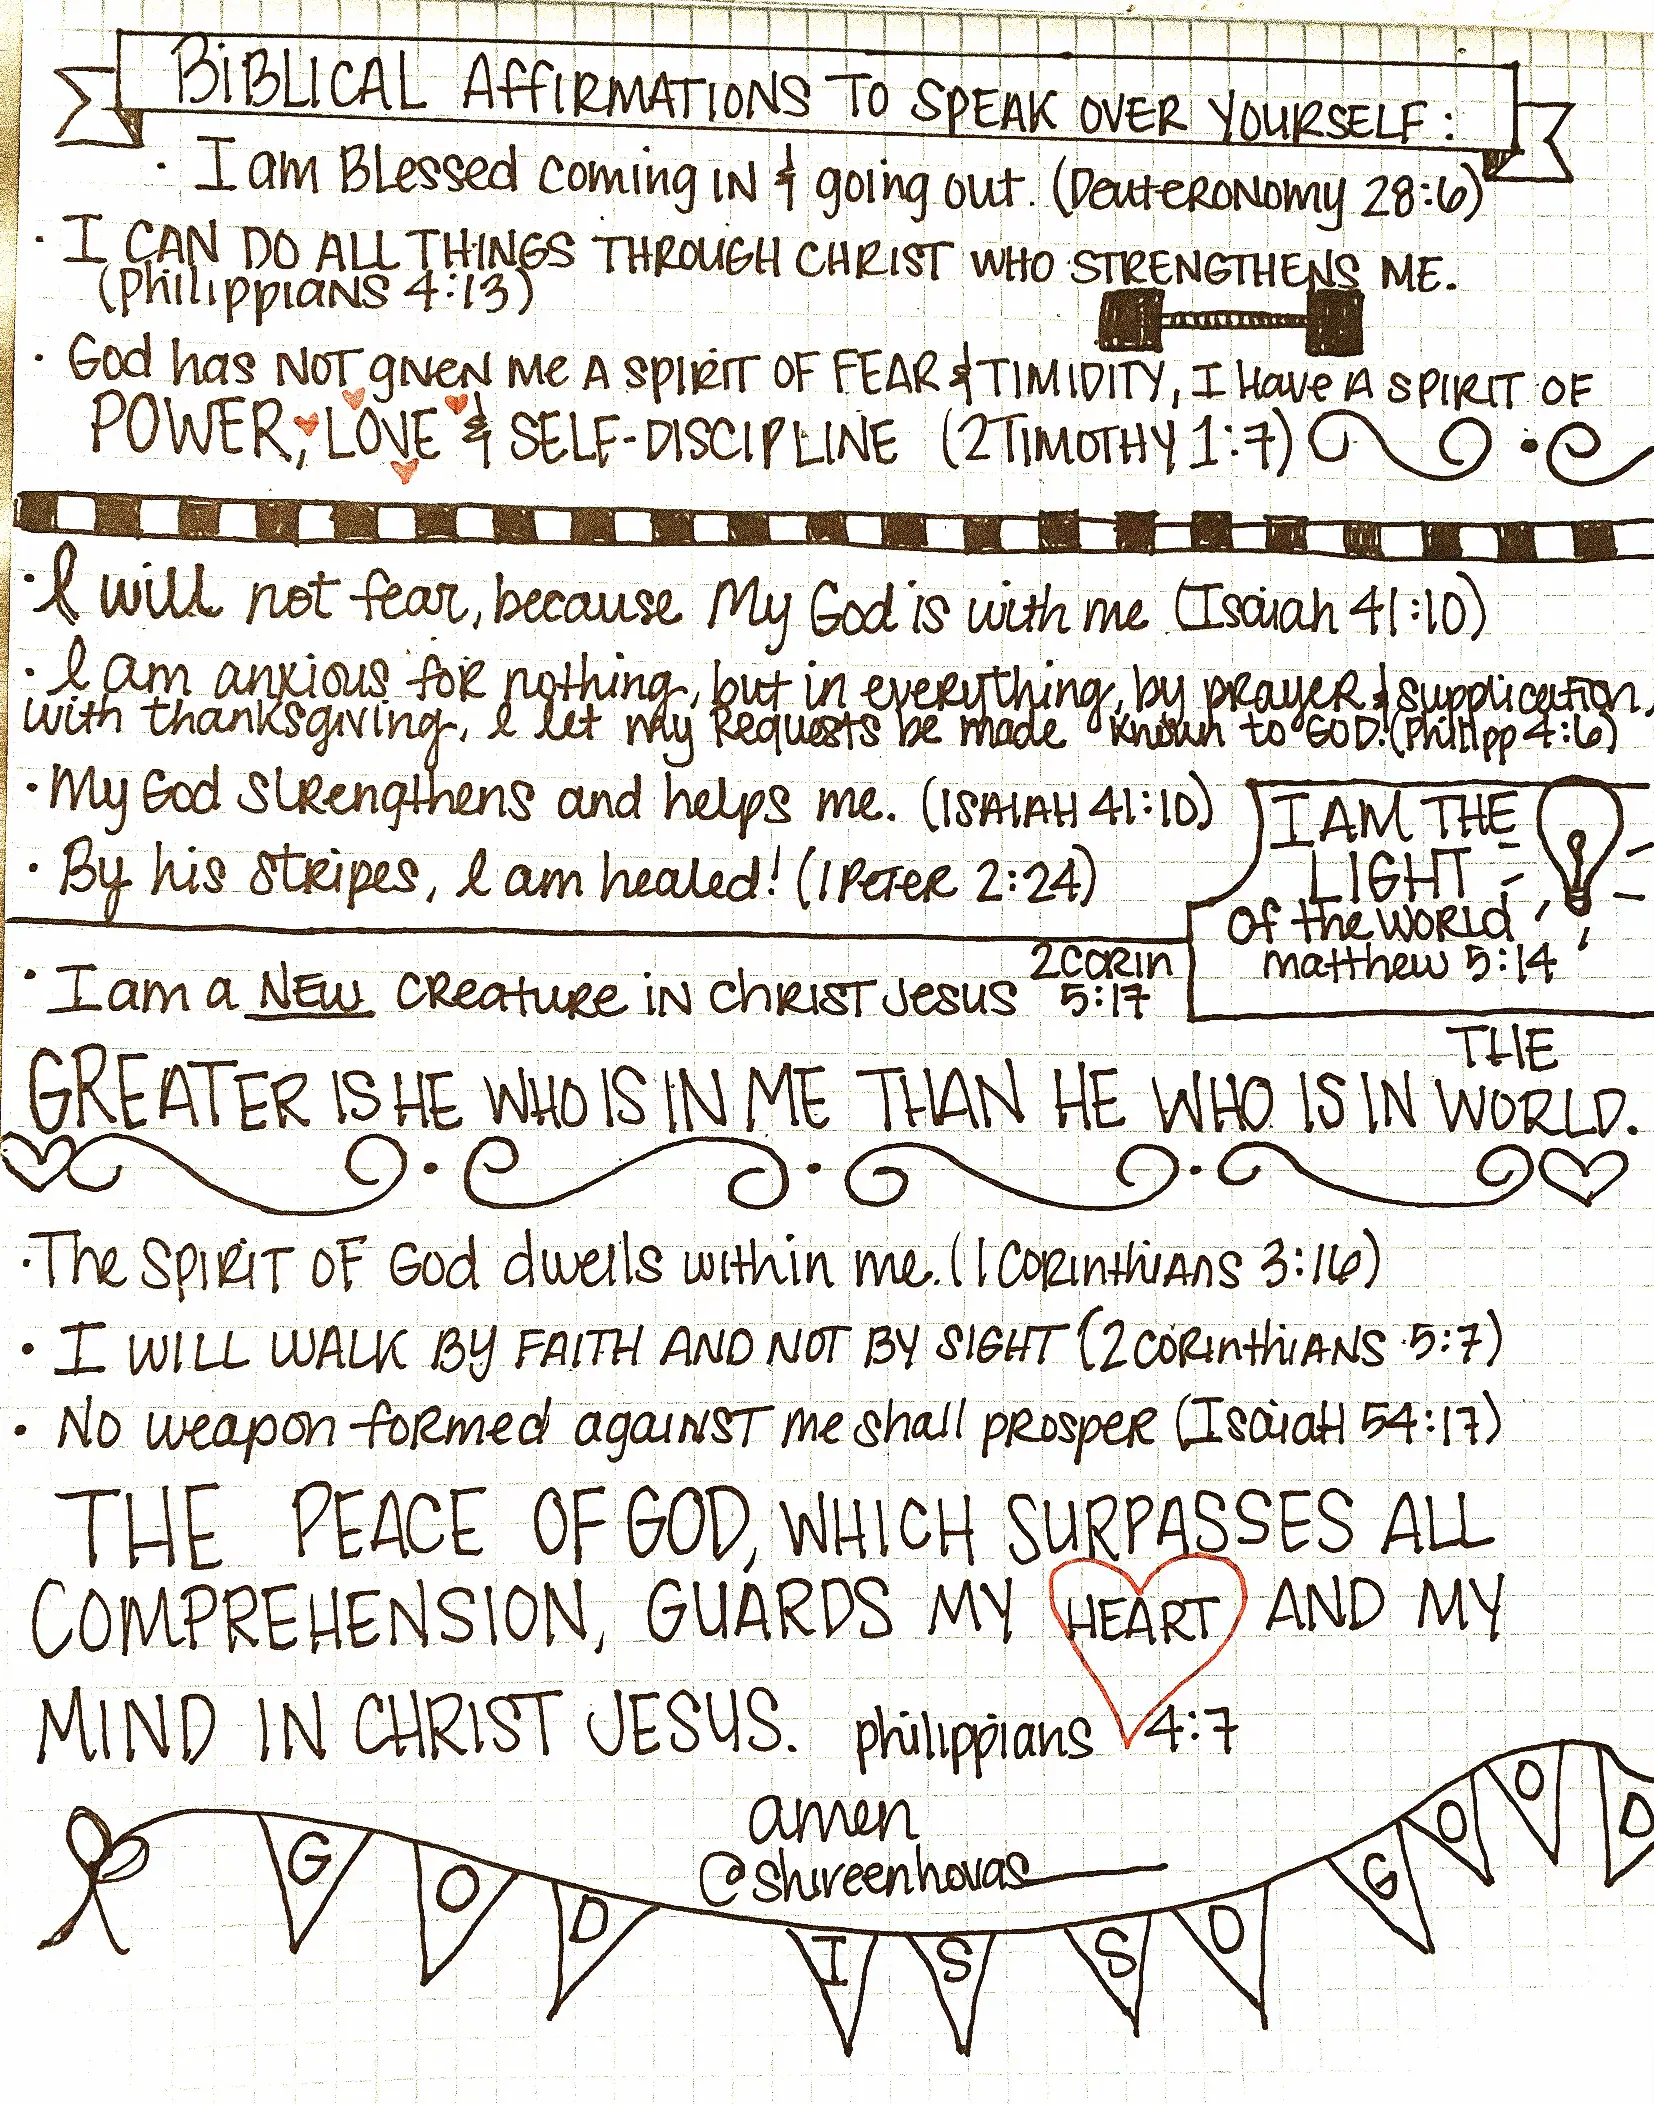 BiBLICAL AFFIRMATIONS TO SPEAK OVER YOURSELF:
· I am Blessed coming IN & going out. (Deuteronomy 28:6)
· I CAN DO ALL THINGS THROUGH CHRIST WHO STRENGTHENS ME.
(Philippians 4:13)
· God has NOT given me A SPIRIT OF FEAR & TIMIDITY, I Have A SPIRIT OF
POWER, LOVE & SELF-DISCIPLINE (2 TIMOTHY 1:7)
· I will not fear, because My God is with me (Isaiah 41:10)
· I am anxious for nothing, but in everything, by prayer & supplication,
with thanksgiving, I let my Requests be made known to GOD. (Philipp 4:6)
· My God strengthens and helps me. (ISAIAH 41:10)
· By his stripes, I am healed! (1 PETER 2:24)
I AM THE
LIGHT
Of the WORLD
matthew 5:14
· I am a NEW creature in CHRIST Jesus 2 CORIN
5:17
GREATER IS HE WHO IS IN ME THAN HE WHO IS IN THE WORLD.
· The SPIRIT OF God dwells within me. (1 Corinthians 3:16)
· I WILL WALK BY FAITH AND NOT BY SIGHT (2 CORINTHIANS 5:7)
· No weapon formed against me shall prosper (Isaiah 54:17)
THE PEACE OF GOD, WHICH SURPASSES ALL
COMPREHENSION, GUARDS MY HEART AND MY
MIND IN CHRIST JESUS. philippians 4:7
amen
@shireenhovas
GOD IS SO GOOD